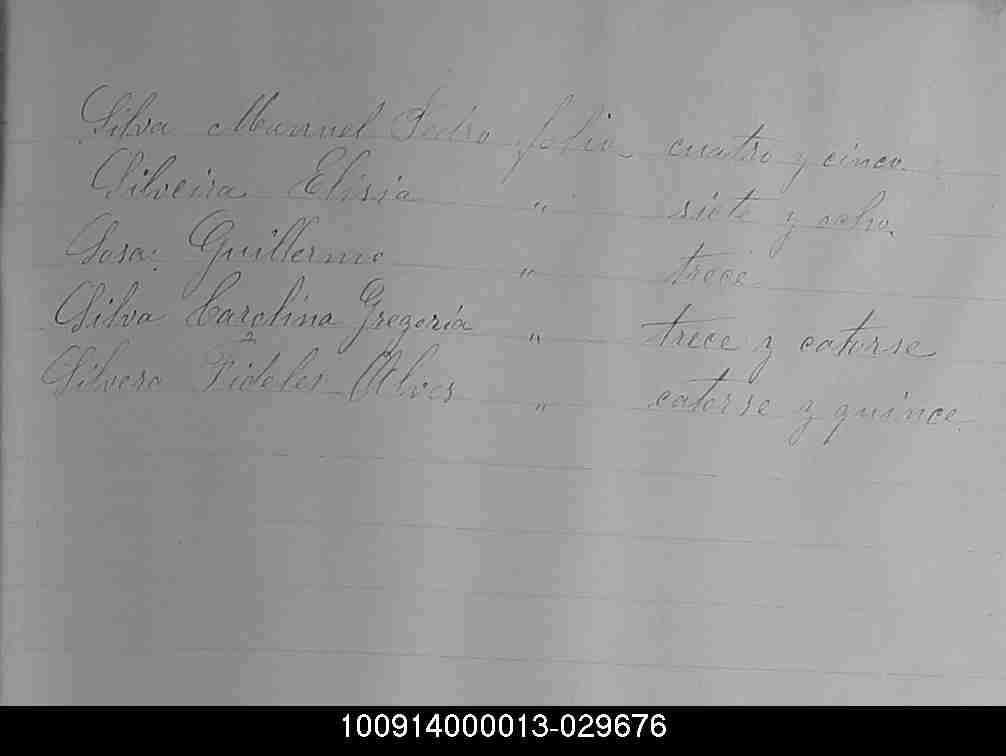 Silva Manuel Pedro folio cuatro y cinco.
Silveira Elisia " siete y ocho.
Sosa: Guillermo " trece
Silva Carolina Gregoria " trece y catorse
Silvera Fideles Alves " catorse y quince.
100914000013-029676